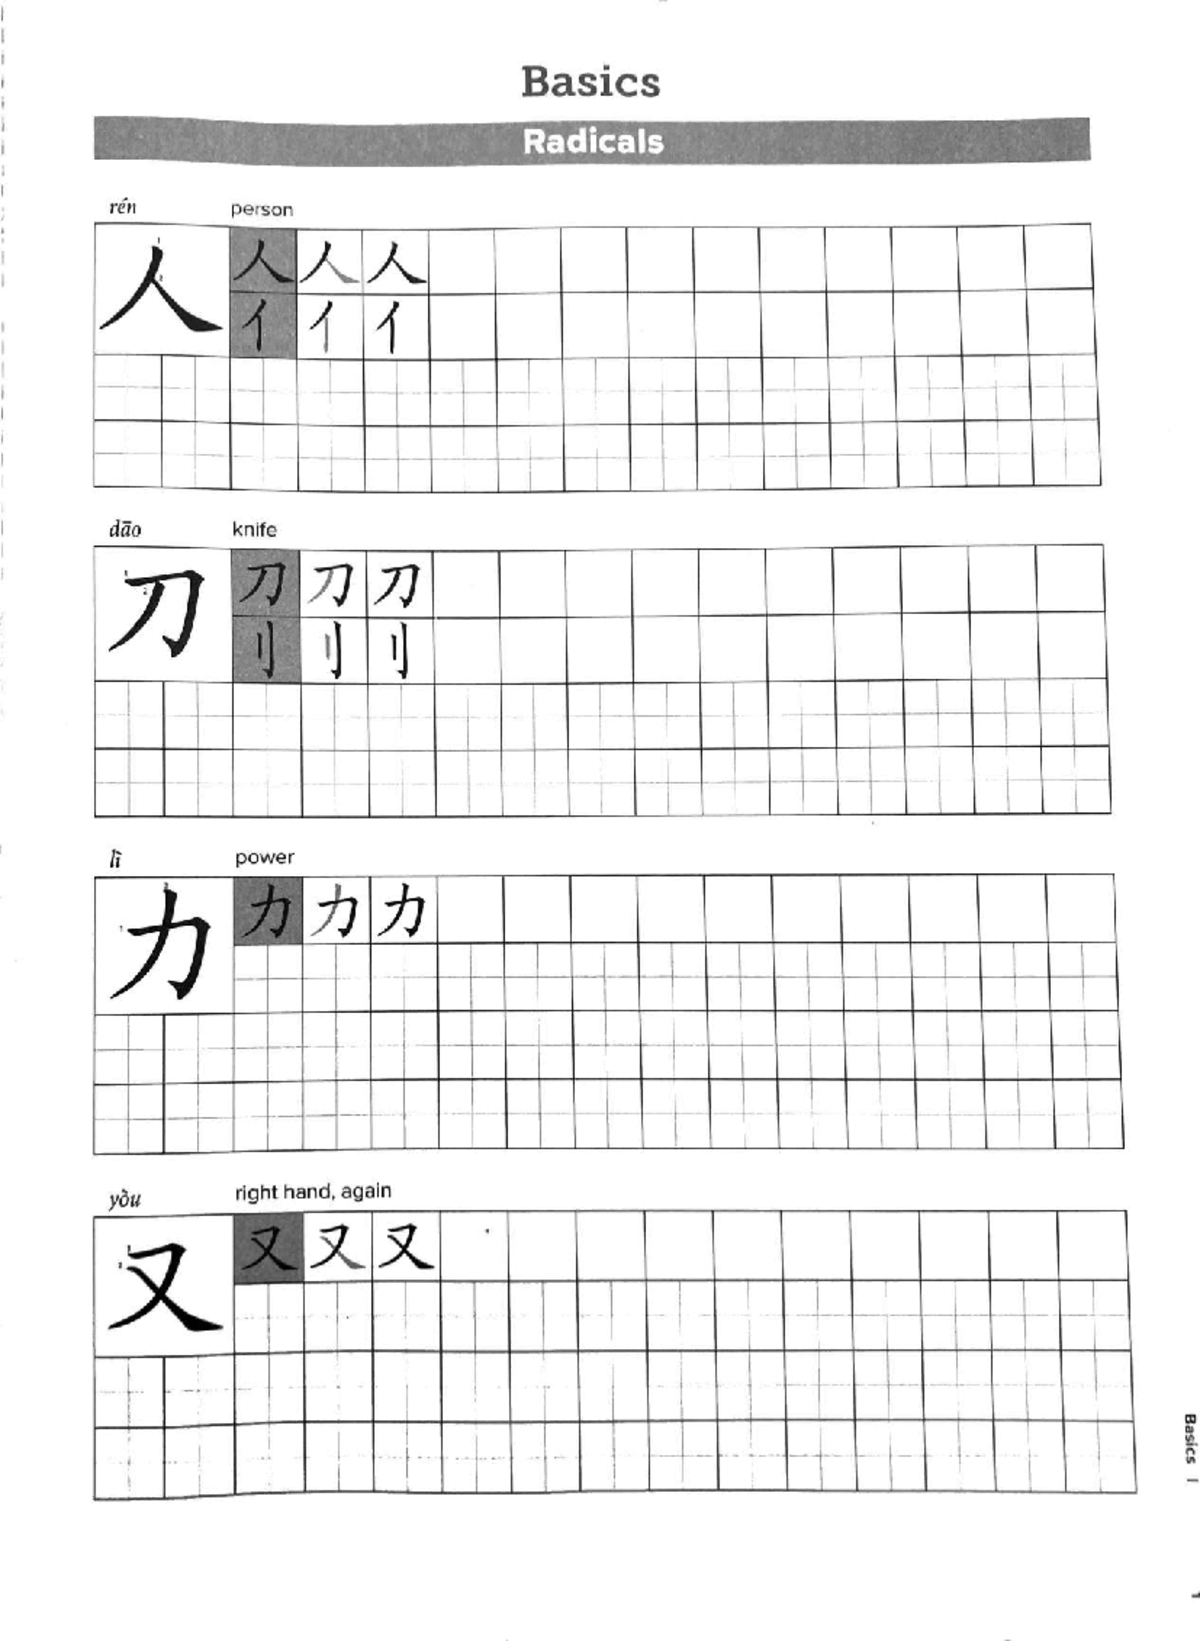 Basics
Radicals
rén person
人 人 人 人
亻 亻 亻
dāo knife
刀 刀 刀 刀
刂 刂 刂
lì power
力 力 力 力
yòu right hand, again
又 又 又 又
Basics 1